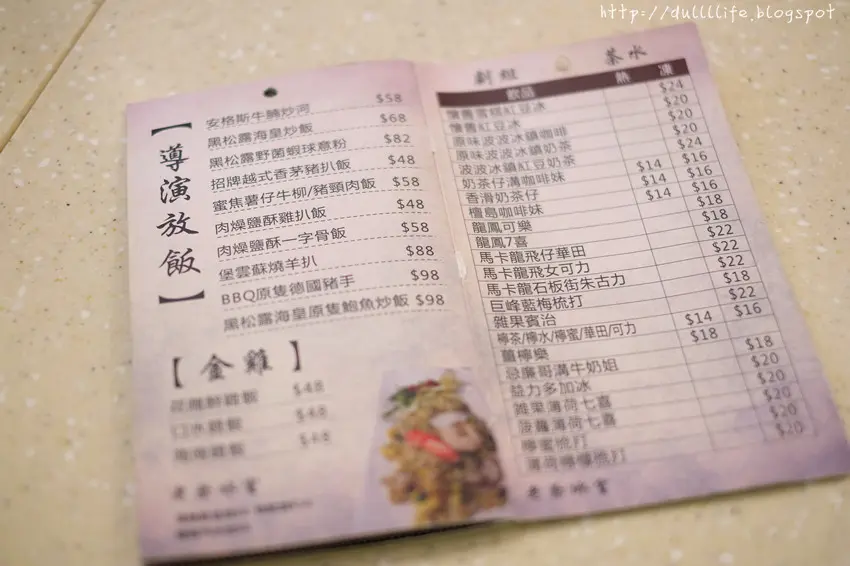 http://dullllife.blogspot
【導演放飯】
安格斯牛腩炒河 $58
黑松露海皇炒飯 $68
黑松露野菌蝦球意粉 $82
招牌越式香茅豬扒飯 $48
蜜焦薯仔牛柳/豬頸肉飯 $58
肉燥鹽酥雞扒飯 $48
肉燥鹽酥一字骨飯 $58
堡雲蘇燒羊扒 $88
BBQ原隻德國豬手 $98
黑松露海皇原隻鮑魚炒飯 $98
【金雞】
花雕醉雞飯 $48
口水雞飯 $48
海南雞飯 $48
劇組 茶水
飲品 熱 凍
懷舊雪糕紅豆冰 $24
懷舊紅豆冰 $20
原味波波冰鎮咖啡 $20
原味波波冰鎮奶茶 $20
波波冰鎮紅豆奶茶 $24
奶茶仔溝咖啡妹 $14 $16
香滑奶茶仔 $14 $16
檀島咖啡妹 $14 $16
龍鳳可樂 $18
龍鳳7喜 $18
馬卡龍飛仔華田 $22
馬卡龍飛女可力 $22
馬卡龍石板街朱古力 $22
巨峰藍梅梳打 $18
雜果賓治 $22
檸茶/檸水/檸蜜/華田/可力 $14 $16
薑檸樂 $18
忌廉哥溝牛奶姐 $18
益力多加冰 $20
雜果薄荷七喜 $20
菠蘿薄荷七喜 $20
檸蜜梳打 $20
薄荷檸檬梳打 $20